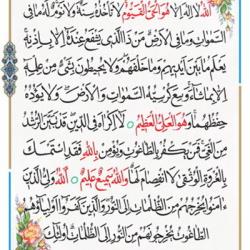 اللَّهُ لَا إِلَٰهَ إِلَّا هُوَ الْحَيُّ الْقَيُّومُ لَا تَأْخُذُهُ سِنَةٌ وَلَا نَوْمٌ لَهُ مَا فِي
السَّمَاوَاتِ وَمَا فِي الْأَرْضِ مَن ذَا الَّذِي يَشْفَعُ عِندَهُ إِلَّا بِإِذْنِهِ
يَعْلَمُ مَا بَيْنَ أَيْدِيهِمْ وَمَا خَلْفَهُمْ وَلَا يُحِيطُونَ بِشَيْءٍ مِّنْ عِلْمِهِ
إِلَّا بِمَا شَاءَ وَسِعَ كُرْسِيُّهُ السَّمَاوَاتِ وَالْأَرْضَ وَلَا يَئُودُهُ
حِفْظُهُمَا وَهُوَ الْعَلِيُّ الْعَظِيمُ لَا إِكْرَاهَ فِي الدِّينِ قَد تَّبَيَّنَ الرُّشْدُ
مِنَ الْغَيِّ فَمَن يَكْفُرْ بِالطَّاغُوتِ وَيُؤْمِن بِاللَّهِ فَقَدِ اسْتَمْسَكَ
بِالْعُرْوَةِ الْوُثْقَىٰ لَا انفِصَامَ لَهَا وَاللَّهُ سَمِيعٌ عَلِيمٌ اللَّهُ وَلِيُّ الَّذِينَ
آمَنُوا يُخْرِجُهُم مِّنَ الظُّلُمَاتِ إِلَى النُّورِ وَالَّذِينَ كَفَرُوا أَوْلِيَاؤُهُمُ
الطَّاغُوتُ يُخْرِجُونَهُم مِّنَ النُّورِ إِلَى الظُّلُمَاتِ أُولَٰئِكَ